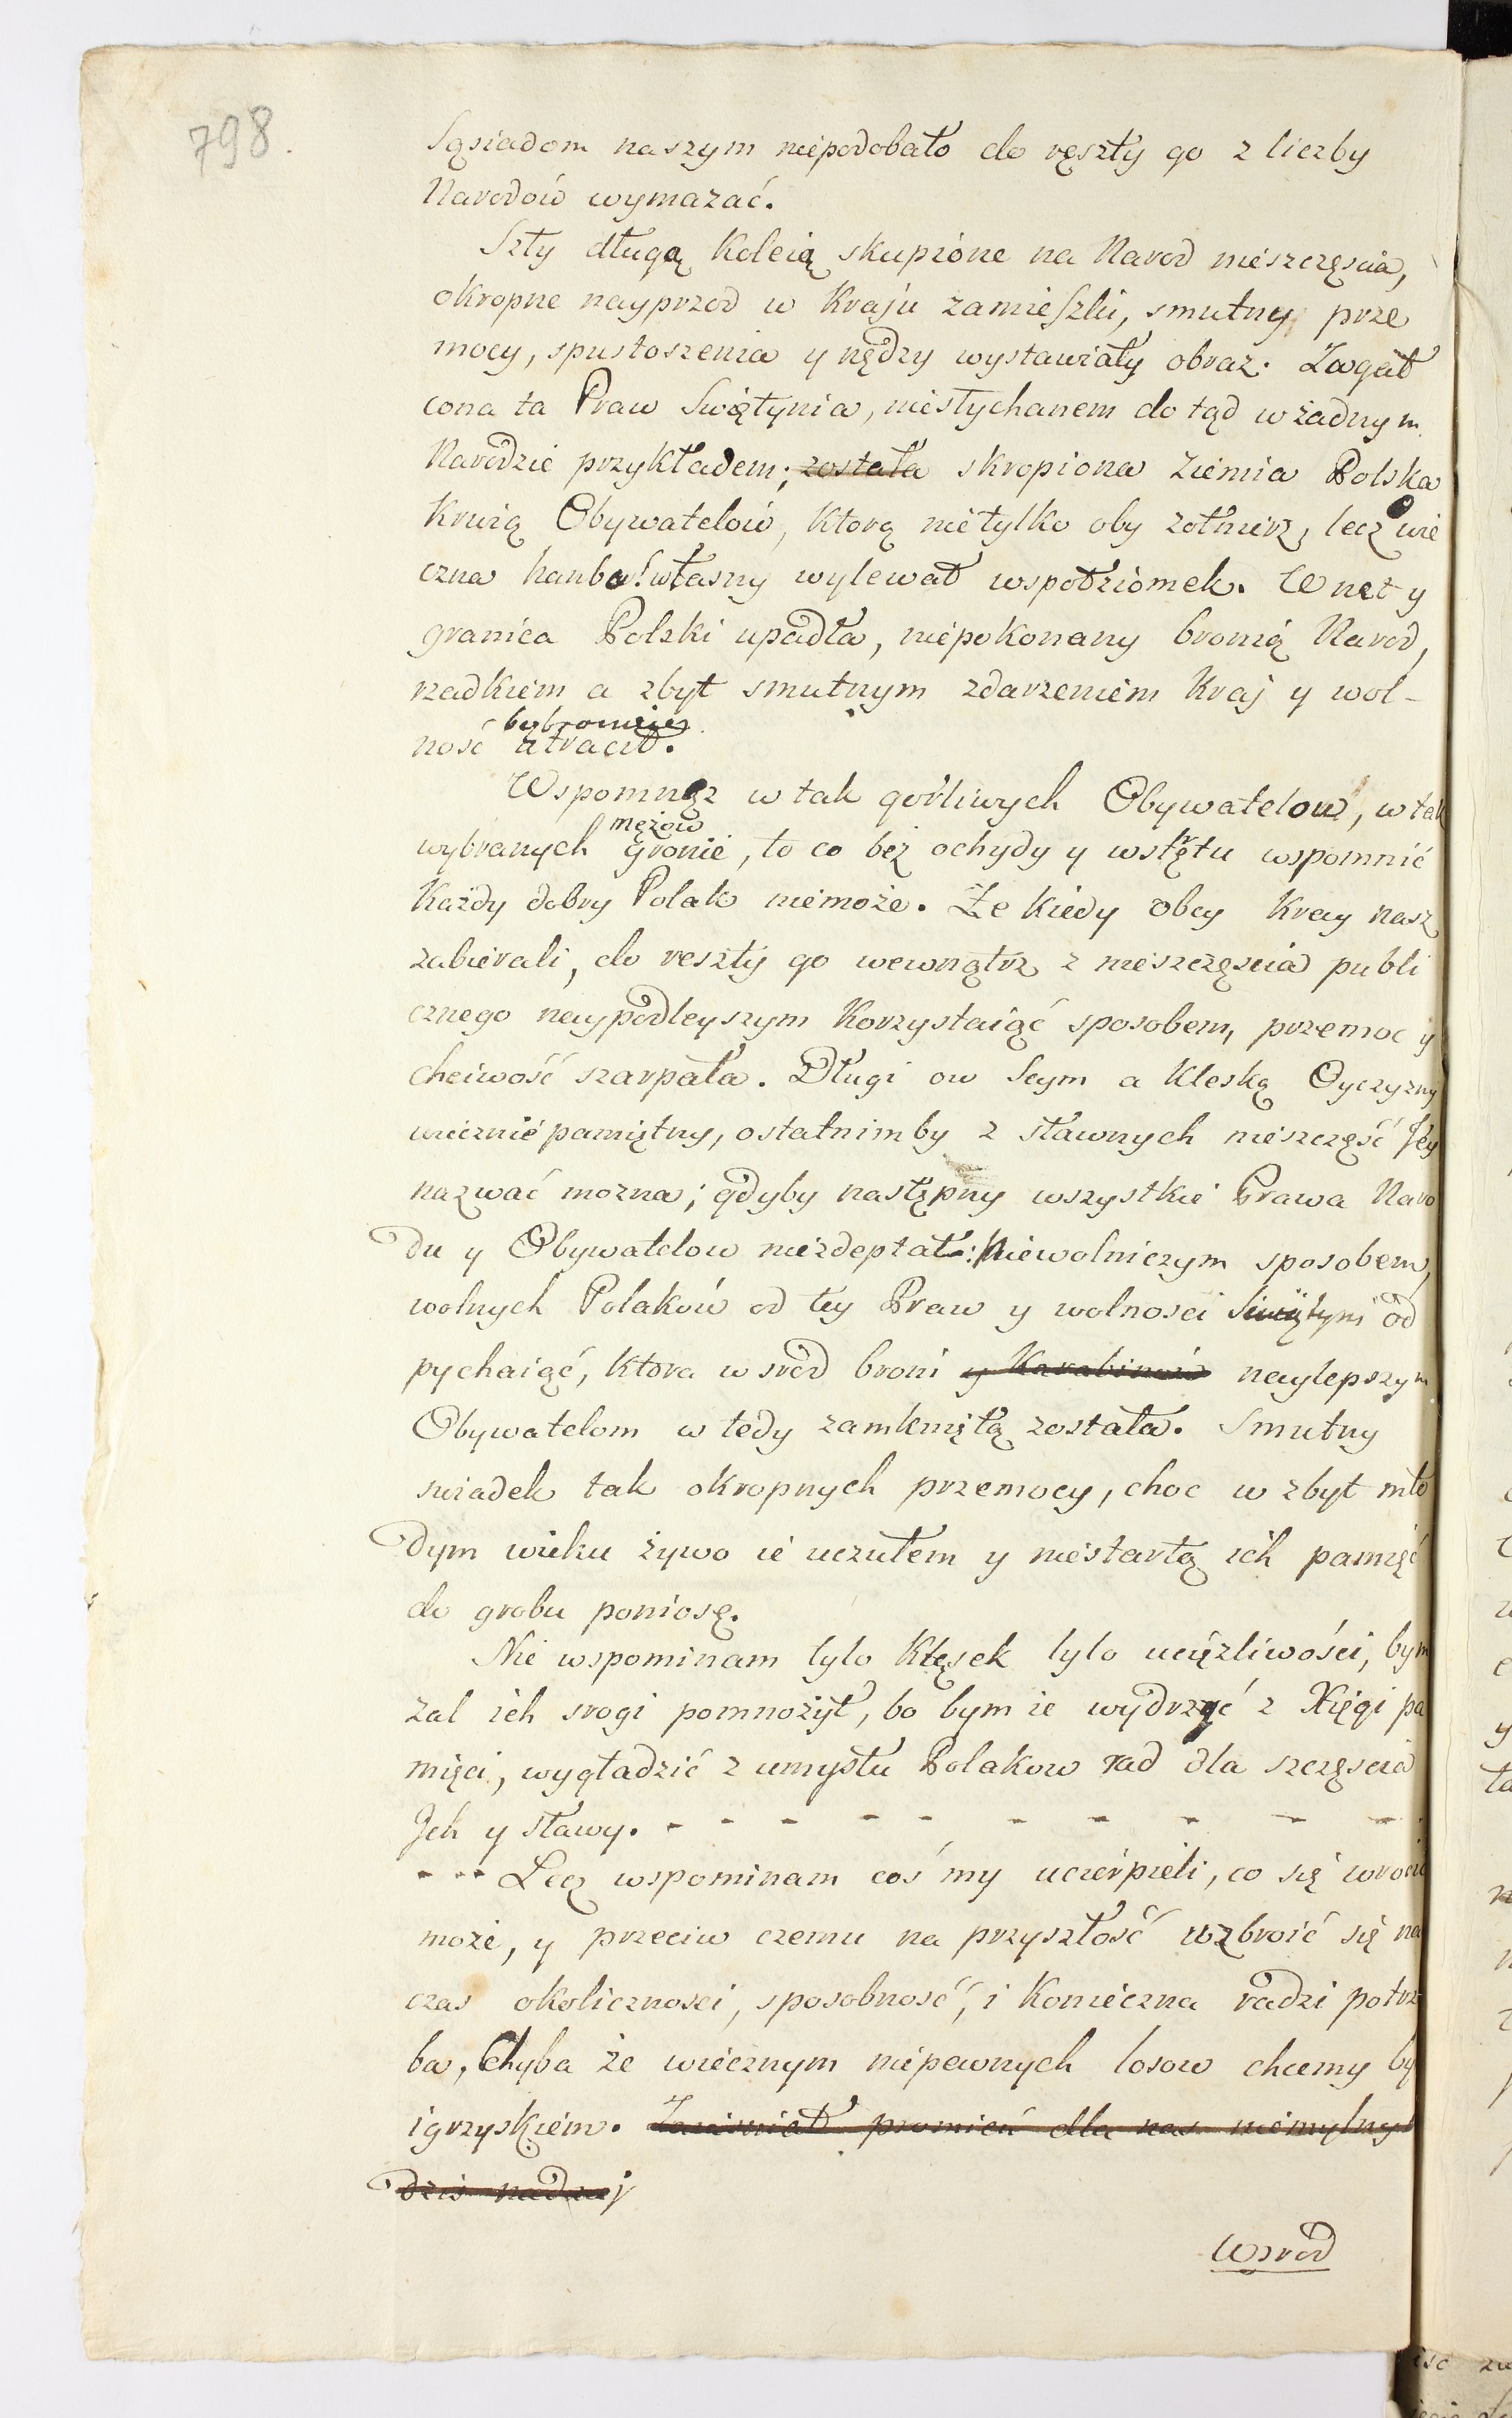 798.
Sąsiadom naszym niepodobało do ręszty go z liczby
Narodów wymazać.
Szły długą koleią skupione na Narod nieszczęscia,
okropne nayprzod w Kraju zamieszki, smutny prze
mocy, spustoszenia y nędzy wystawiały obraz. Zagał
cona ta Praw Swiętynia, niesłychanem do tąd w żadnym
Narodzie przykładem; została skropiona Ziemia Polska
krwią Obywatelów, ktorą nietylko oby zołnierz, lecz wie
czna hanba! własny wylewał wspołziomek. Wnet y
granica Polski upadła, niepokonany bronią Narod,
rzadkiem a zbyt smutnym zdarzeniem Kraj y wol-
ność utracił.
Wspomnęz w tak gorliwych Obywatelow, w tak
mężow
wybranych gronie, to co bez ochydy y wstrętu wspomnić
Każdy dobry Polak niemoże. Że kiedy obcy Kray nasz
zabierali, do reszty go wewnątrz z nieszczęscia publi
cznego naypodleyszym korzystaiąć sposobem, przemoc y
cheiwość szarpała. Długi ow Seym a kleską Oyczyzny
wiecznie pamiętny, ostatnimby z sławnych nieszczęść Jey
nazwać mozna; gdyby następny wszystkie Prawa Naro
du y Obywatelow niezdeptał: Niewolniczym sposobem,
wolnych Polaków od tey Praw y wolnosci Swiętyni od
pychaiąć, ktora w sród broni y Karabinów naylepszym
Obywatelom w tedy zamkniętą została. Smutny
swiadek tak okropnych przemocy, choc w zbyt mło
dym wieku żywo ie uczułem y niestartą ich pamięć
do grobu poniosę.
Nie wspominam tylo klęsek tylo uciężliwości, bym
zal ich srogi pomnożył, bo bym ie wydrzyć z Xięgi pa
mięci, wygładzić z umysłu Polakow rad dla szczęscia
Jch y sławy. - - - - - - - - - -
- - - Lecz wspominam coś my ucierpieli, co się wrocić
może, y przeciw czemu na przyszłość uzbroić się na
czas okolicznosci, sposobność, i konieczna radzi potrz
ba, Chyba że wiecznym niepewnych losow chcemy by
igrzyskiem. Zaiaśniał promień dla nas niemylnych
dziś nadziej
Wsrod